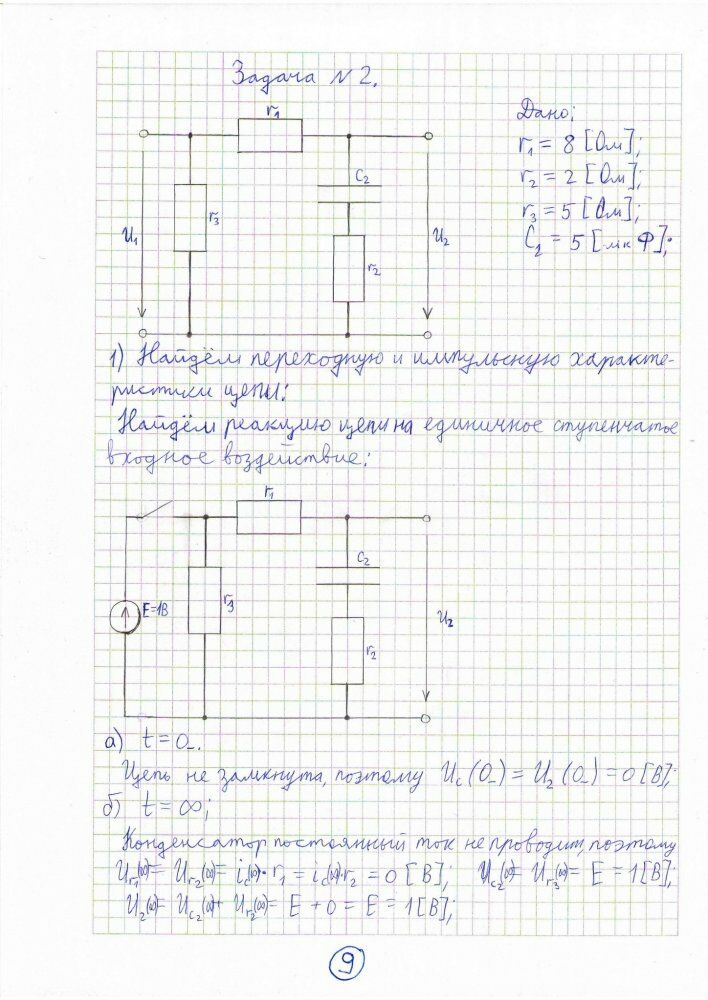 Задача №2.
r₁
Дано:
r₁ = 8 [Ом];
r₂ = 2 [Ом];
r₃ = 5 [Ом];
C₂ = 5 [мкФ];
C₂
r₃
U₁
U₂
r₂
1) Найдём переходную и импульсную характе-
ристики цепи:
Найдём реакцию цепи на единичное ступенчатое
входное воздействие:
r₁
C₂
E=1В
r₃
U₂
r₂
а) t = 0₋.
Цепь не замкнута, поэтому U_c(0₋) = U₂(0₋) = 0 [В];
б) t = ∞;
Конденсатор постоянный ток не проводит, поэтому
U_r₁(∞) = U_r₂(∞) = i_c(∞)·r₁ = i_c(∞)·r₂ = 0 [В]; U_c₂(∞) = U_r₃(∞) = E = 1 [В];
U₂(∞) = U_c₂(∞) + U_r₂(∞) = E + 0 = E = 1 [В];
9